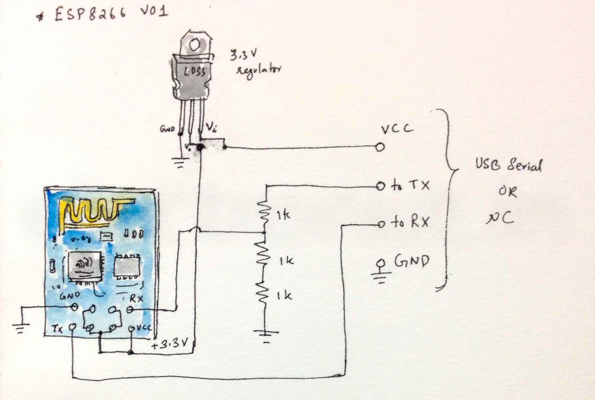 * ESP8266 V01
3.3V
regulator
LD33
GND
Vi
Vo
VCC
to TX
to RX
GND
USB Serial
OR
NC
1k
1k
1k
GND
RX
TX
VCC
+3.3V